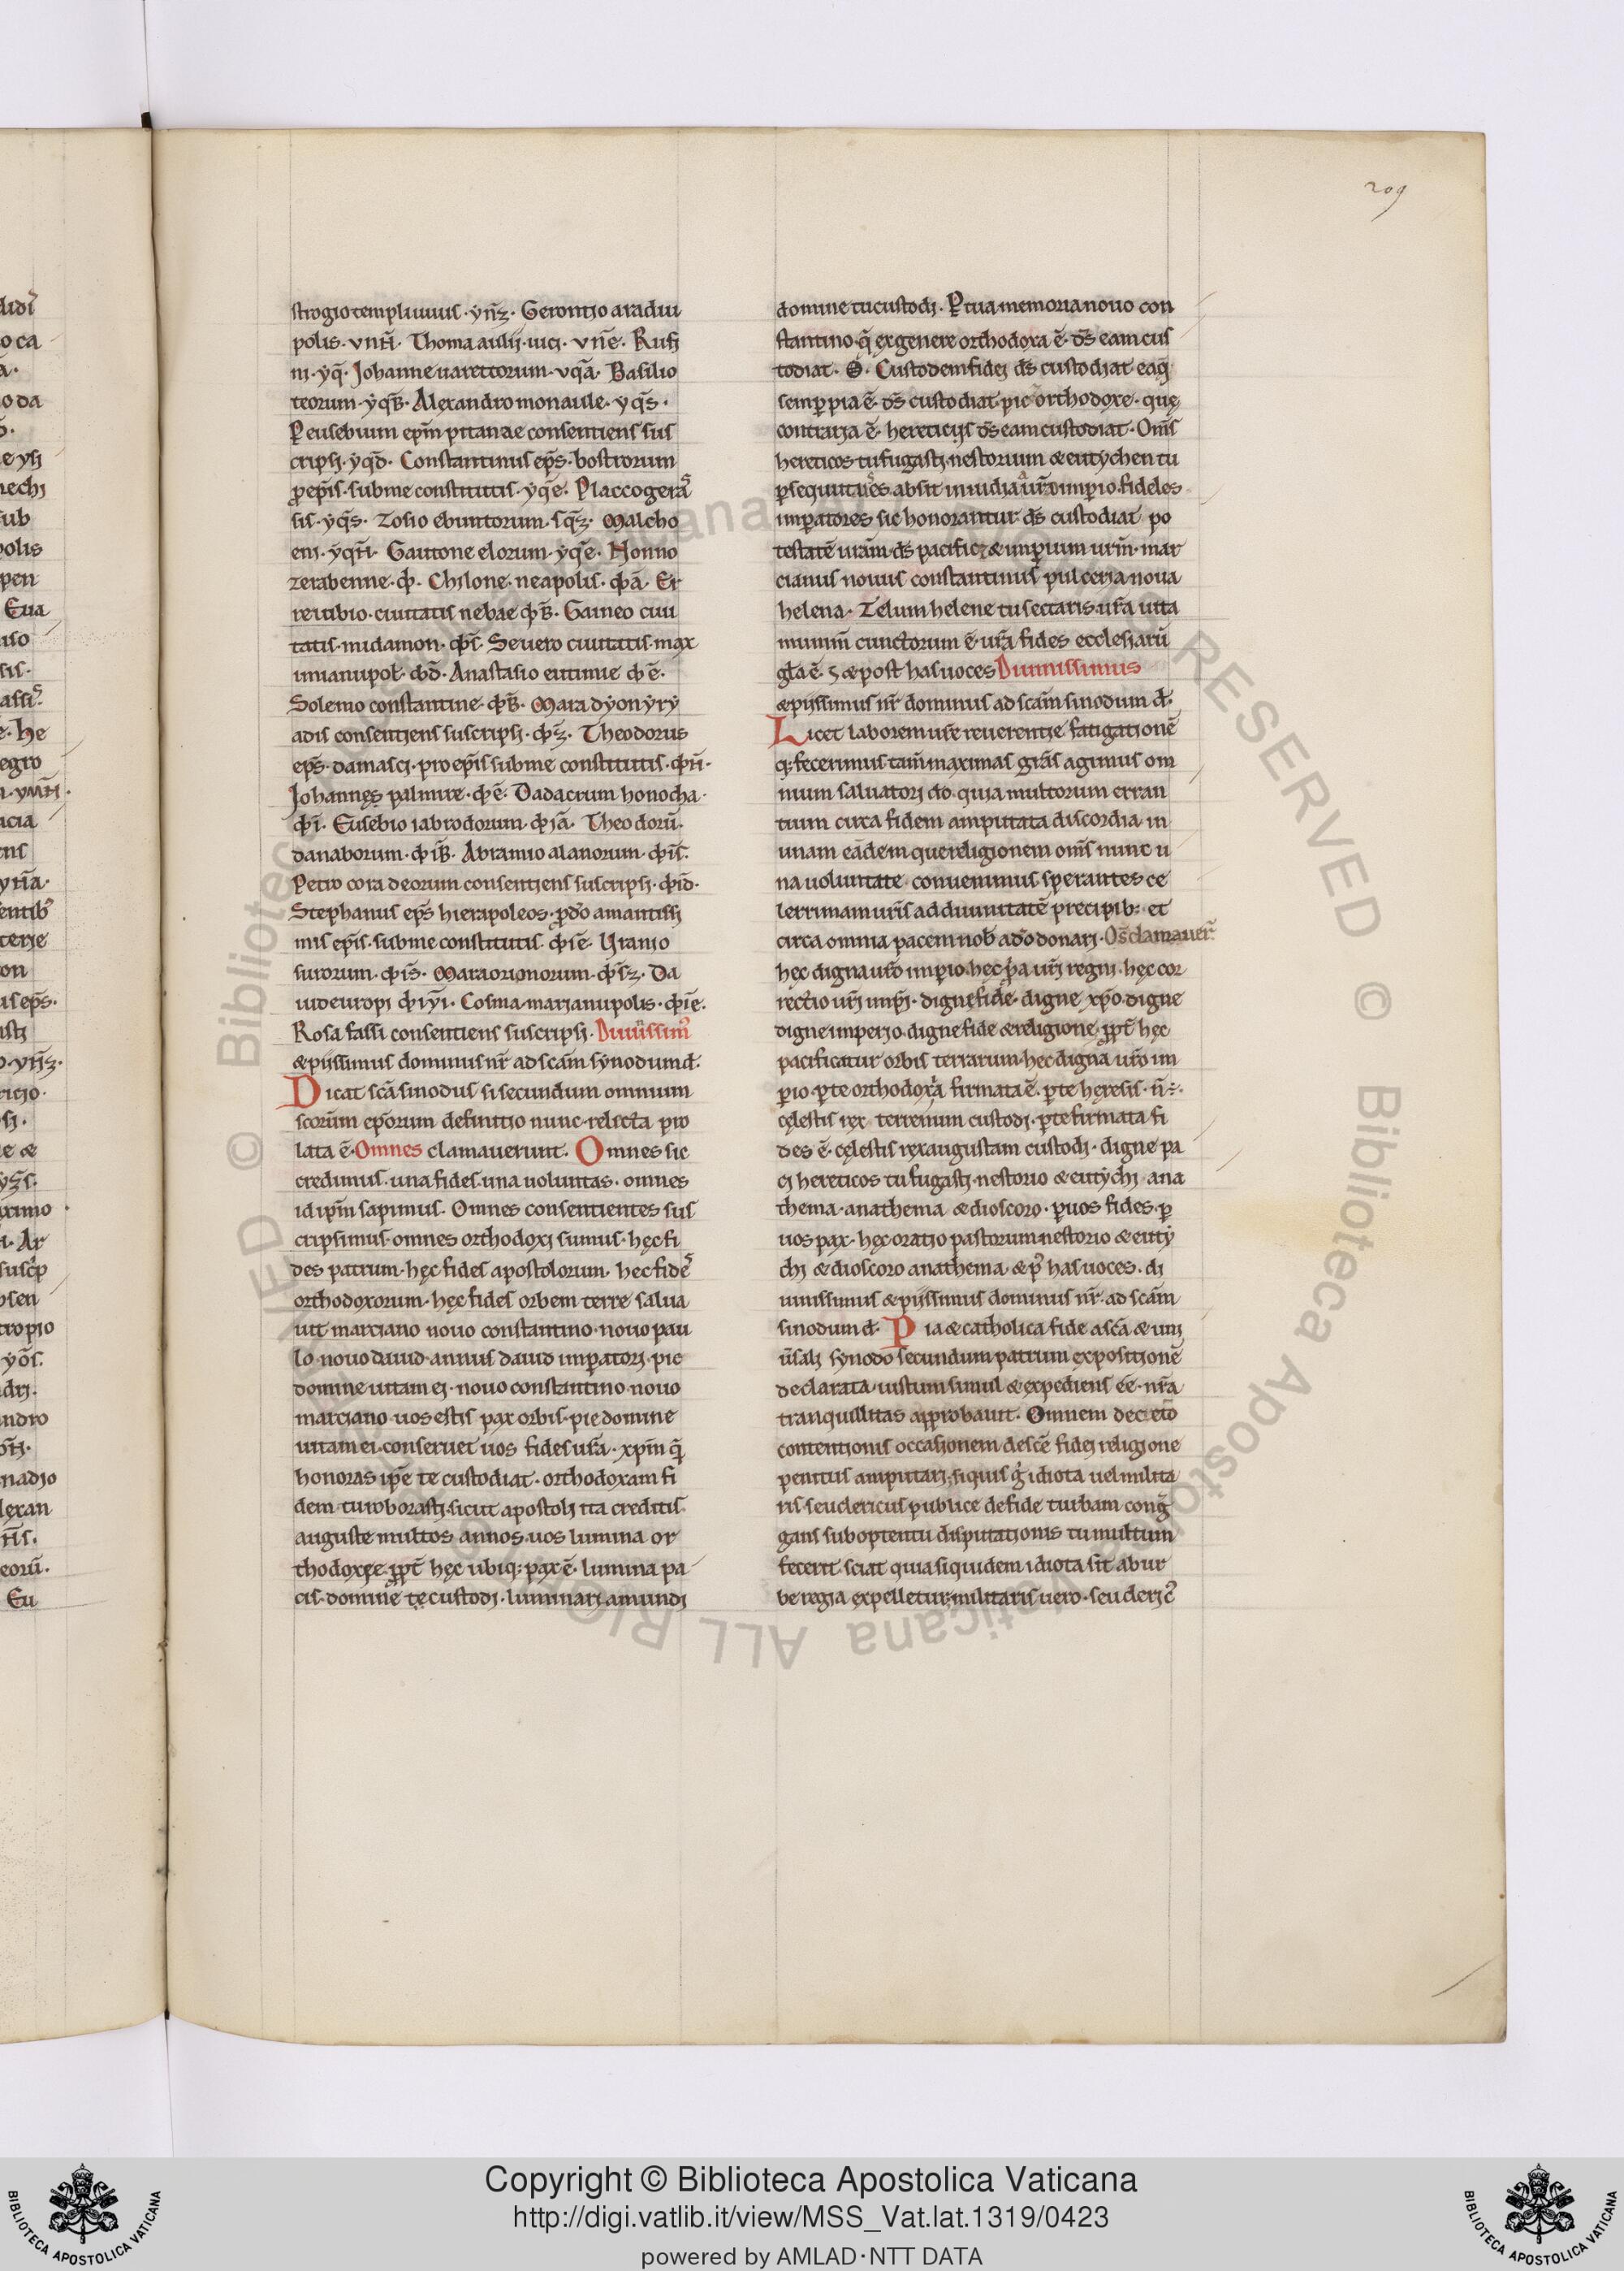 209
strogio templi uiuus · yñȝ · Gerontio aradiu
polis · vnħ · Thoma aulii · uici · vñe · Rufi
ni · yq̄ · Johanne uarettorum · vqā · Basilio
teorum · yqB̄ · Alexandro monaule · yqs̄ ·
P eusebium ep̄m pitanae consentiens sus
cripsi · yqd̄ · Constantinus ep̄s · bostrorum
ꝓ ep̄is · sub me constitutis · yqē · Placcogerā
sis · yqs̄ · Zosio ebuntorum · sqȝ̄ · Malcho
eni · yqħ · Gautone elorum · yqē · Nonno
zerabenne · ȹ · Chilone · neapolis · ȹā · Er
reuibio · ciuitatis nebae ȹB̄ · Gaineo ciui
tatis · midamon · ȹs̄ · Seuero ciuitatis · max
imianupol̄ · ȹd̄ · Anastasio eutimie ȹē ·
Solemo constantine · ȹB̄ · Mara dyonyry
adis consentiens suscripsi · ȹȝ̄ · Theodorus
ep̄s · damasci · pro ep̄is sub me constitutis · ȹħ ·
Johannes palmire · ȹē · Dadacrum honocha ·
ȹī · Eusebio iabrodorum · ȹiā · Theodorū ·
danaborum · ȹiB̄ · Abramio alanorum · ȹis̄ ·
Petro cora deorum consentiens suscripsi · ȹid̄ ·
Stephanus ep̄s hierapoleos · ꝓ dō amantissi
mis ep̄is · sub me constitutis · ȹiē · Uranio
surorum · ȹis̄ · Mara orionorum · ȹīȝ · Da
uid europi ȹiyi · Cosma · marianupolis · ȹiē ·
Rosa fassi consentiens suscripsi · Diuiissim᾽
&piissimus dominus nr̄ ad scām synodum đ ·
Dicat scā sinodus si secundum omnium
scōrum ep̄orum definitio nunc · relicta pro
lata ē · Omnes clamauerunt · Omnes sic
credimus · una fides · una uoluntas · omnes
id ip̄m sapimus · Omnes consentientes sus
cripsimus · omnes orthodoxi sumus · hęc fi
des patrum · hęc fides apostolorum · hec fide᾽
orthodoxorum · hęc fides orbem terre salua
uit marciano nouo constantino · nouo pau
lo · nouo dauid · annus dauid imꝑatori · pie
domine uitam ei · nouo constantino · nouo
marciano · uos estis pax orbis · pie domine
uitam ei · conseruet uos fides ur̄a · xp̄m q̄
honoras ip̄e te custodiat · orthodoxam fi
dem · tu roborasti · sicut apostoli ita creditis ·
auguste multos annos · uos lumina or
thodoxę ꝓpt̄ hęc ubiq: pax ē · lumina pa
cis · domine te custodi · luminari a mundi
domine tu custodi · Ꝑ tua memoria nouo con
stantino · q̄ ex genere orthodoxa ē · ds̄ eam cus
todiat · Custodem fidei ds̄ custodiat eaq̄
semꝑ pia ē · ds̄ custodiat pie orthodoxe · quę
contraria ē · hereticiis ds̄ eam custodiat · Om̄s
hereticos tu fugasti · nestorium & eutychen tu
ꝑsequutus es · absit inuidia ur̄o imꝑio · fideles
imꝑatores sic honorantur · ds̄ custodiat po
testatē uiam · ds̄ pacific & imꝑium urm̄ · mar
cianus nouus constantinus pulceria noua
helena · Zelum helene tu sectaris · ur̄a uita
munim̄ cunctorum ē · ur̄a fides ecclesiarū
gl̄a ē · & post has uoces Diuinissimus
&piissimus nr̄ dominus ad scām sinodum đ ·
Licet laborem ur̄e reuerentie fatigationē
q: fecerimus · tam̄ maximas grās agimus om
nium saluatori dō · quia multorum erran
tium circa fidem amputata discordia · in
unam eādem que religionem om̄s nunc u
na uoluntate · conuenimus sperantes ce
lerrimam ur̄is ad d̄ unitatē precipib: et
circa omnia pacem nob a dō donari · Os̄ clamauer̄
hęc digna ur̄o imꝑio · hęc ꝓa ur̄i regni · hęc cor
rectio ur̄i imꝑi · digne fide · digne xp̄o · digne
digne imperio · digne fide & religione · ꝓpt̄ hęc
pacificatur orbis terrarum · hęc digna ur̄o im
ꝑio · ꝑ te orthodoxa firmata ē · ꝑ te hęresis · n̄ ÷ ·
cęlestis rex terrenum custodi · ꝑ te firmata fi
des ē · cęlestis rex augustam custodi · digne pa
ci hereticos tu fugasti · nestorio & eutychi · ana
thema · anathema & dioscoro · ꝑ uos fides · ꝑ
uos pax · hęc oratio pastorum · nestorio & euty
chi & dioscoro anathema · & p᾽ has uoces · di
uinissimus & piissimus dominus nr̄ · ad scām
sinodum đ · Pia & catholica fide a scā & uni
ūsali synodo secundum patrum expositionē
declarata · iustum simul & expediens ēē · nr̄a
tranquillitas approbauit · Omnem de cetō
contentionis occasionem de scē fidei religione
penitus amputari · siquis g̊ idiota uel milita
ris · seu clericus publice de fide turbam cong̊
gans sub optentu disputationis tumultum
fecerit · sciat quia siquidem idiota sit ab ur
be regia expelletur; militaris uero · seu cleric᾽
Copyright © Biblioteca Apostolica Vaticana
http://digi.vatlib.it/view/MSS_Vat.lat.1319/0423
powered by AMLAD·NTT DATA